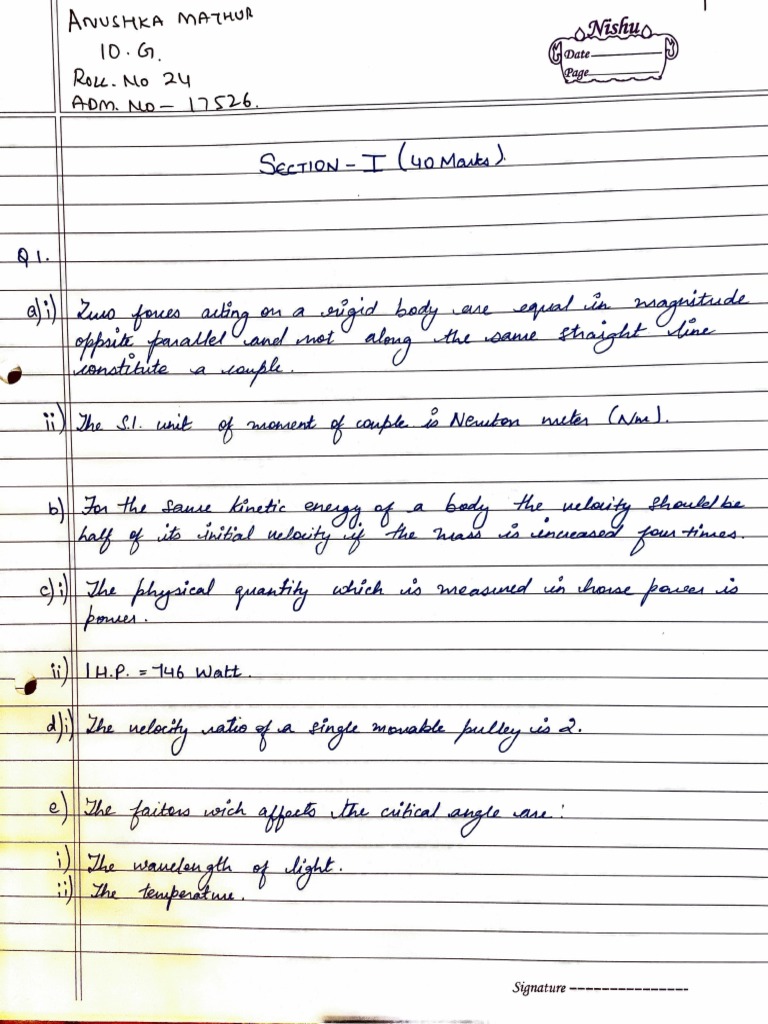 1
ANUSHKA MATHUR
10.G.
ROLL. NO 24
ADM. NO - 17526.
Nishu
Date
Page
SECTION - I (40 Marks).
Q1.
a)i) Two forces acting on a rigid body are equal in magnitude
oppsite parallel and not along the same straight line
constitute a couple.
ii) The S.I. unit of moment of couple is Newton meter (Nm).
b) For the same kinetic energy of a body the velocity should be
half of its initial velocity if the mass is increased four times.
c)i) The physical quantity which is measured in horse power is
power.
ii) 1 H.P. = 746 Watt.
d)i) The velocity ratio of a single movable pulley is 2.
e) The factors wich affects the critical angle are:
i) The wavelength of light.
ii) The temperature.
Signature